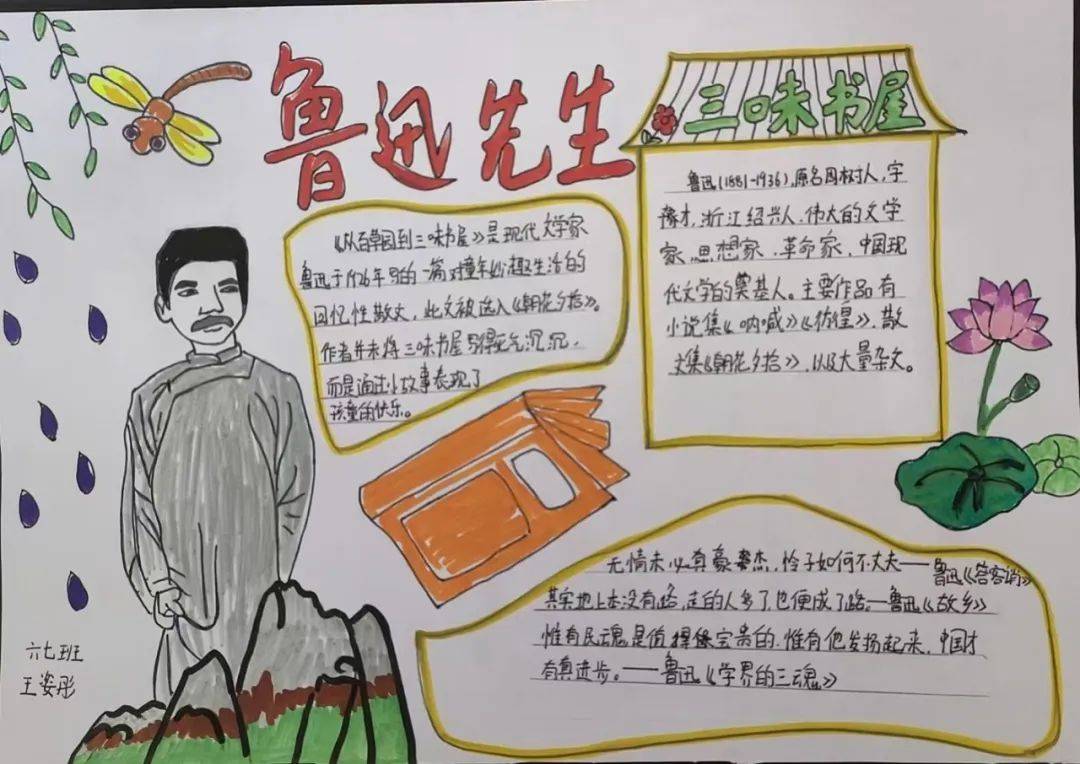 鲁迅先生
三味书屋
《从百草园到三味书屋》是现代文学家
鲁迅于1926年写的一篇对童年妙趣生活的
回忆性散文，此文被选入《朝花夕拾》。
作者并未将三味书屋写得死气沉沉，
而是通过小故事表现了
孩童的快乐。
鲁迅(1881-1936)，原名周树人，字
豫才，浙江绍兴人，伟大的文学
家、思想家、革命家，中国现
代文学的奠基人。主要作品有
小说集《呐喊》《彷徨》，散
文集《朝花夕拾》，以及大量杂文。
无情未必真豪杰，怜子如何不丈夫——鲁迅《答客诮》
其实地上本没有路，走的人多了，也便成了路。——鲁迅《故乡》
惟有民魂是值得宝贵的，惟有他发扬起来，中国才
有真进步。——鲁迅《学界的三魂》
六七班
王姿彤